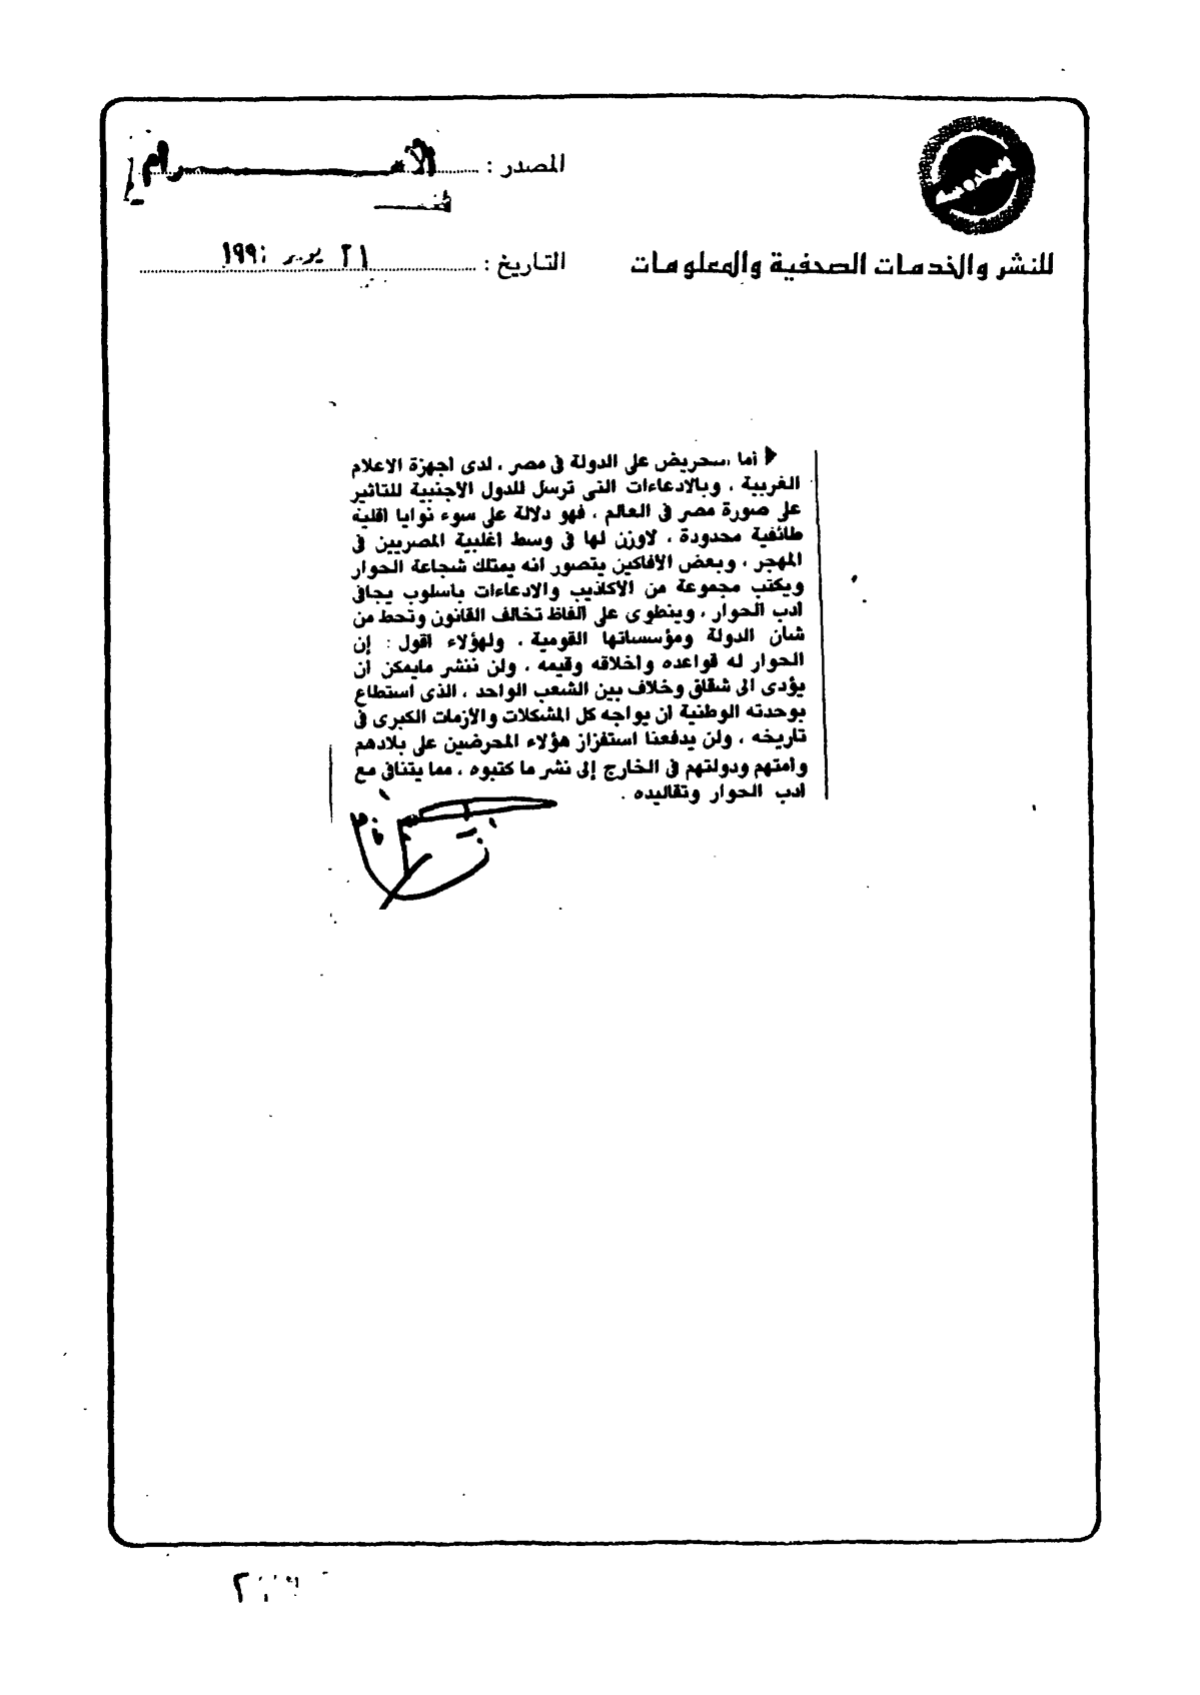 المصدر : الأهـــــــرام
التاريخ : ٢١
للنشر والخدمات الصحفية والمعلومات
أما سحريض على الدولة فى مصر ، لدى اجهزة الاعلام
الغربية ، وبالادعاءات التى ترسل للدول الاجنبية للتاثير
على صورة مصر فى العالم ، فهو دلالة على سوء نوايا اقلية
طائفية محدودة ، لاوزن لها فى وسط اغلبية المصريين فى
المهجر ، وبعض الأفاكين يتصور انه يمتلك شجاعة الحوار
ويكتب مجموعة من الأكاذيب والادعاءات باسلوب يجافى
ادب الحوار ، وينطوى على الفاظ تخالف القانون وتحط من
شان الدولة ومؤسساتها القومية ، ولهؤلاء اقول : إن
الحوار له قواعده واخلاقه وقيمه ، ولن ننشر مايمكن ان
يؤدى الى شقاق وخلاف بين الشعب الواحد ، الذى استطاع
بوحدته الوطنية ان يواجه كل المشكلات والازمات الكبرى فى
تاريخه ، ولن يدفعنا استفزاز هؤلاء المحرضين على بلادهم
وامتهم ودولتهم فى الخارج إلى نشر ما كتبوه ، مما يتنافى مع
ادب الحوار وتقاليده .